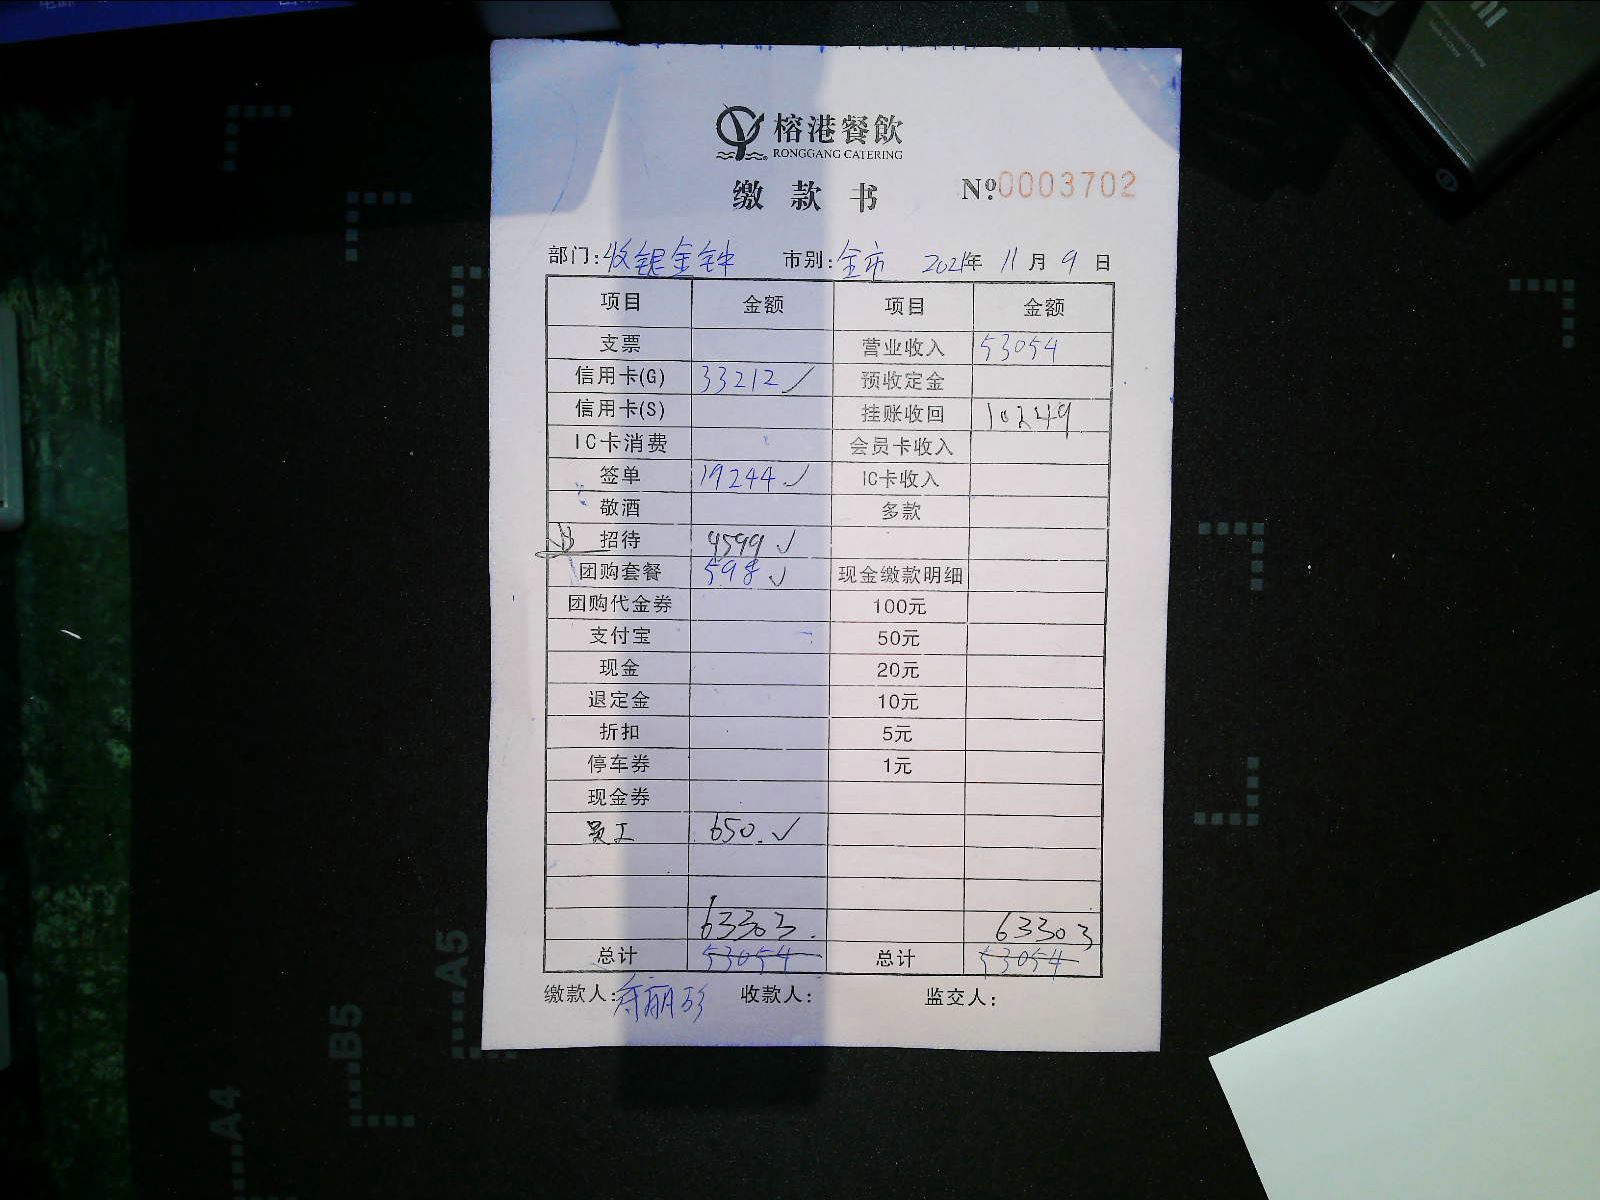 榕港餐飲
RONGGANG CATERING
缴款书 Nº:0003702
部门:收银金钟 市别:全市 2021年 11月 9日
项目 金额 项目 金额
支票 营业收入 53054
信用卡(G) 33212✓ 预收定金
信用卡(S) 挂账收回 10249
IC卡消费 会员卡收入
签单 19244✓ IC卡收入
敬酒 多款
招待 9599✓
团购套餐 598✓ 现金缴款明细
团购代金券 100元
支付宝 50元
现金 20元
退定金 10元
折扣 5元
停车券 1元
现金券
员工 650.✓
63303. 63303
总计 53054 总计 53054
缴款人: 收款人: 监交人:
A5
B5
A4